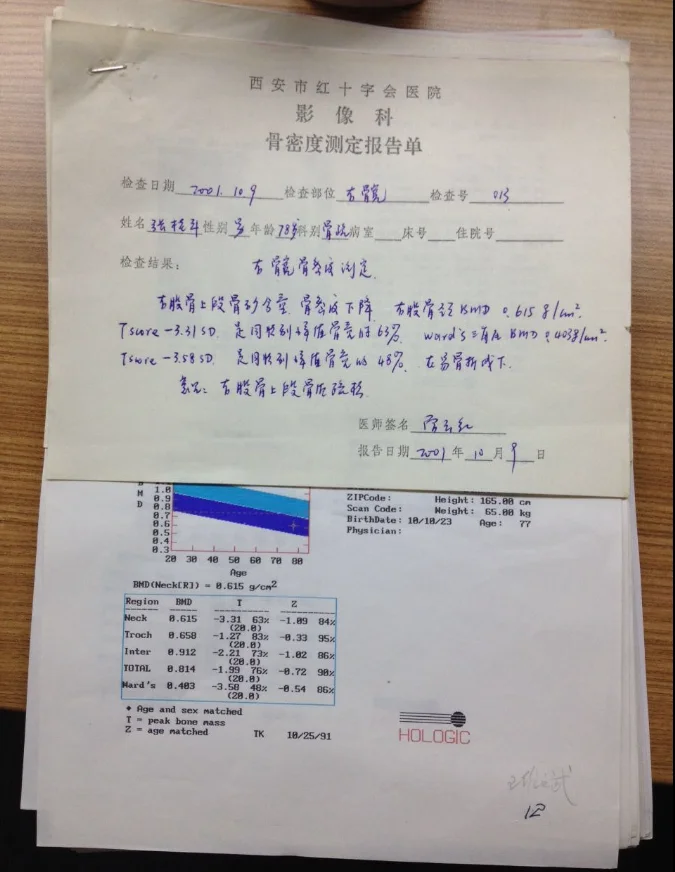 西安市红十字会医院
影像科
骨密度测定报告单
检查日期 2001.10.9 检查部位 右髋 检查号 013
姓名 张 性别 男 年龄 78岁 科别 骨 病室 床号 住院号
检查结果:
右髋骨密度测定.
右股骨上段骨矿含量、骨密度下降. 右股骨颈BMD 0.615g/cm².
Tscore -3.31SD. 是同性别峰值骨量的63%. ward's三角区BMD 0.403g/cm².
Tscore -3.58SD. 是同性别峰值骨量的48%. 在易骨折线下.
意见: 右股骨上段骨质疏松.
医师签名
报告日期 2001 年 10 月 9 日
B
M
D
1.0
0.9
0.8
0.7
0.6
0.5
0.4
0.3
20 30 40 50 60 70 80
Age
ZIPCode: Height: 165.00 cm
Scan Code: Weight: 65.00 kg
BirthDate: 10/10/23 Age: 77
Physician:
BMD(Neck[R]) = 0.615 g/cm2
Region BMD T Z
Neck 0.615 -3.31 63% -1.09 84%
(20.0)
Troch 0.658 -1.27 83% -0.33 95%
(20.0)
Inter 0.912 -2.21 73% -1.02 86%
(20.0)
TOTAL 0.814 -1.99 76% -0.72 90%
(20.0)
Ward's 0.403 -3.58 48% -0.54 86%
(20.0)
♦ Age and sex matched
T = peak bone mass
Z = age matched TK 10/25/91
HOLOGIC